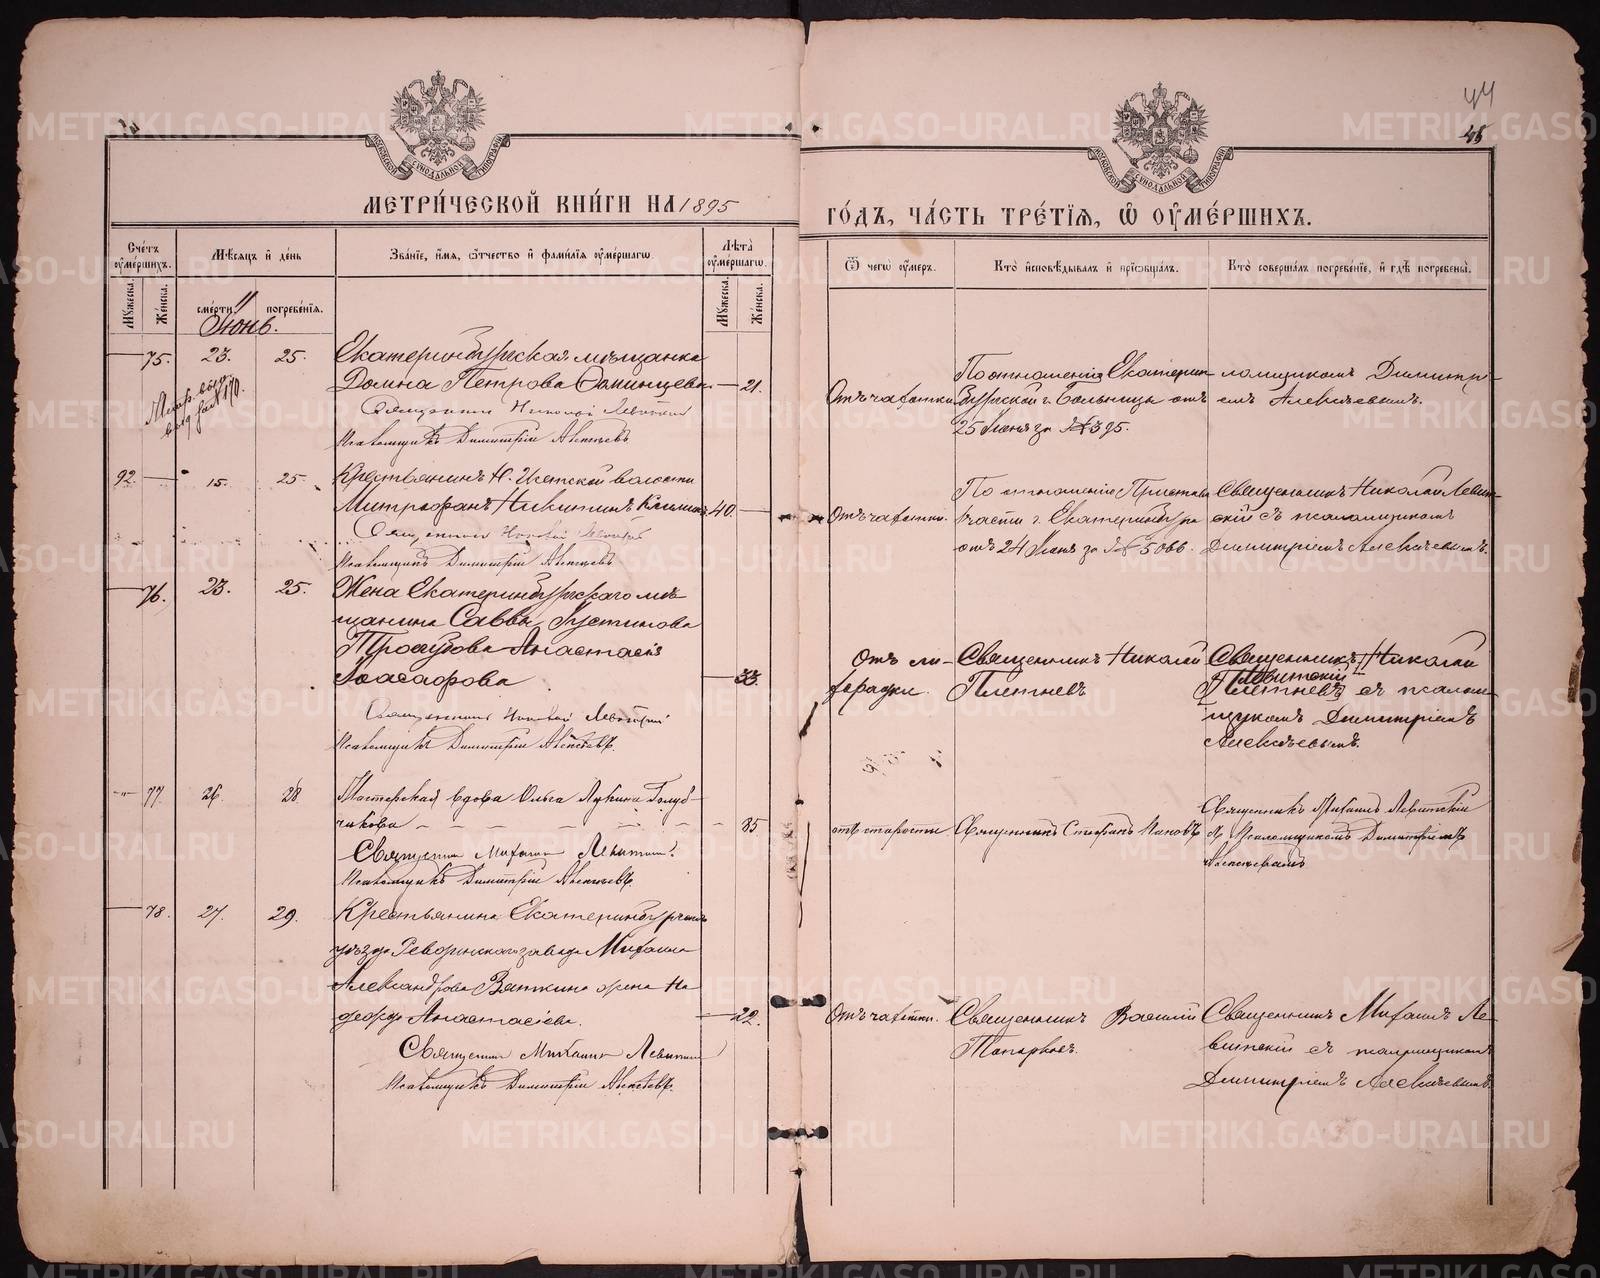 44
45
МОСКОВСКОЙ СѴНОДАЛЬНОЙ ТИПОГРАФІИ
МОСКОВСКОЙ СѴНОДАЛЬНОЙ ТИПОГРАФІИ
МЕТРИ́ЧЕСКОЙ КНИ́ГИ НА 1895
ГО́ДЪ, ЧА́СТЬ ТРЕ́ТІѦ, Ѿ ОУМЕ́РШИХЪ.
Сче́тъ оуме́ршихъ.
Мꙋжеска.
Же́нска.
Мѣсѧцъ и де́нь
сме́рти
погребе́нїѧ.
Зва́нїе, и́мѧ, ѻ҆́тчество и фами́лїѧ оуме́ршагѡ
Лѣта̀ оуме́ршагѡ.
Мꙋжеска.
Же́нска.
Ѿ чегѡ̀ оу́меръ.
Кто̀ и҆сповѣ́дывалъ и прїѡбща́лъ.
Кто̀ соверша́лъ погребе́нїе, и гдѣ̀ погребены̀.
Іюнь.
75. 23. 25. Екатеринбургская мѣщанка
Домна Петрова 21.
Священникъ Николай Левитскій
Псаломщикъ Димитрій Алексѣевъ
Отъ чахотки
По отношенію Екатерин-
бургской г. больницы отъ
25 Іюня за № 395.
ломщикомъ Димитрі-
емъ Алексѣевымъ.
92. 15. 25. Крестьянинъ Н. Исетской волости
Митрофанъ Никитинъ 40.
Священникъ Николай Левитскій
Псаломщикъ Димитрій Алексѣевъ
Отъ чахотки.
По отношенію Пристава
1 части г. Екатеринбурга
отъ 24 Іюня за № 5066.
Священникъ Николай Левит-
скій съ псаломщикомъ
Димитріемъ Алексѣевымъ.
76. 23. 25. Жена Екатеринбургскаго мѣ-
щанина Саввы Іустинова
Анастасія
Іоасафова 33.
Священникъ Николай Левитскій
Псаломщикъ Димитрій Алексѣевъ.
Отъ ли-
хорадки.
Священникъ Николай
Плетневъ
Священникъ Николай
Левитскій
Плетневъ съ псалом-
щикомъ Димитріемъ
Алексѣевымъ.
77. 26. 28. Мастерская вдова Ольга Лукина Голуб-
чикова 85
Священникъ Михаилъ Левитскій
Псаломщикъ Димитрій Алексѣевъ.
отъ старости
Священникъ Стефанъ Поповъ
Священникъ Михаилъ Левитскій
съ Псаломщикомъ Димитріемъ
Алексѣевымъ
78. 27. 29. Крестьянина Екатеринбургскаго
уѣзда Ревдинскаго завода Михаила
Александрова Вяткина жена На
дежда Анастасіева. 22.
Священникъ Михаилъ Левитскій
Псаломщикъ Димитрій Алексѣевъ.
Отъ чахотки.
Священникъ Василій
Топорковъ.
Священникъ Михаилъ Ле-
витскій съ псаломщикомъ
Димитріемъ Алексѣевымъ.
METRIKI.GASO-URAL.RU